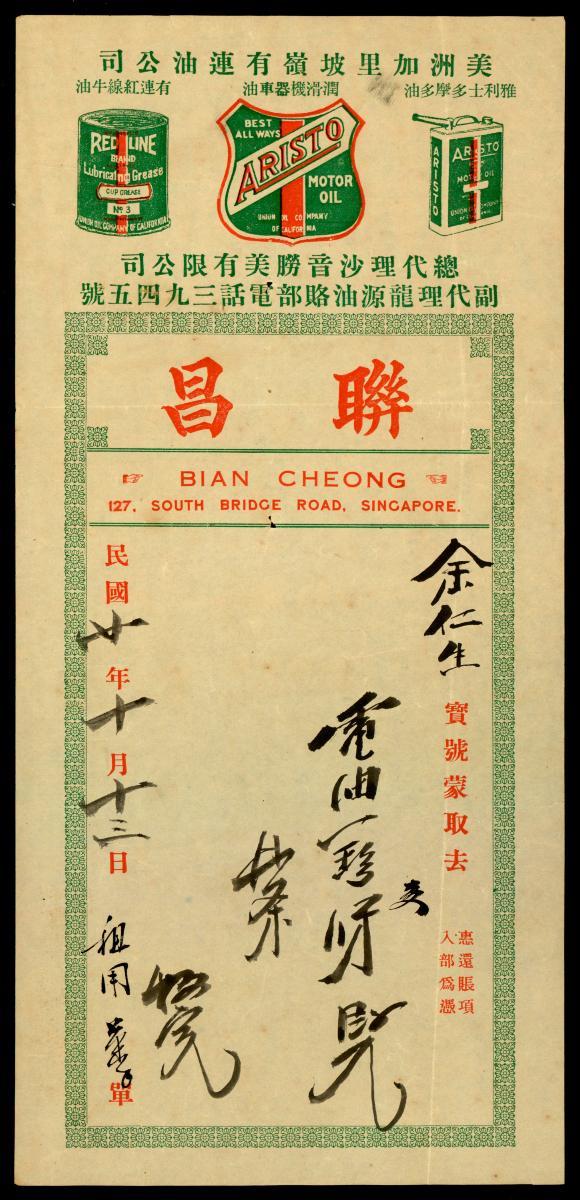 美洲加里坡嶺有連油公司
雅利士多摩多油
潤滑機器車油
有連紅線牛油
RED LINE
BRAND
Lubricating Grease
CUP GREASE
No 3
UNION OIL COMPANY OF CALIFORNIA
BEST
ALL WAYS
ARISTO
MOTOR
OIL
UNION OIL COMPANY
OF CALIFORNIA
ARISTO
ARISTO
MOTOR OIL
UNION OIL COMPANY
OF CALIFORNIA
總代理沙音勝美有限公司
副代理龍源油賂部電話三九四五號
聯昌
BIAN CHEONG
127, SOUTH BRIDGE ROAD, SINGAPORE.
余仁生寶號蒙取去
惠還賬項
入部為憑
電油一
民國廿年十月十三日
租用 單